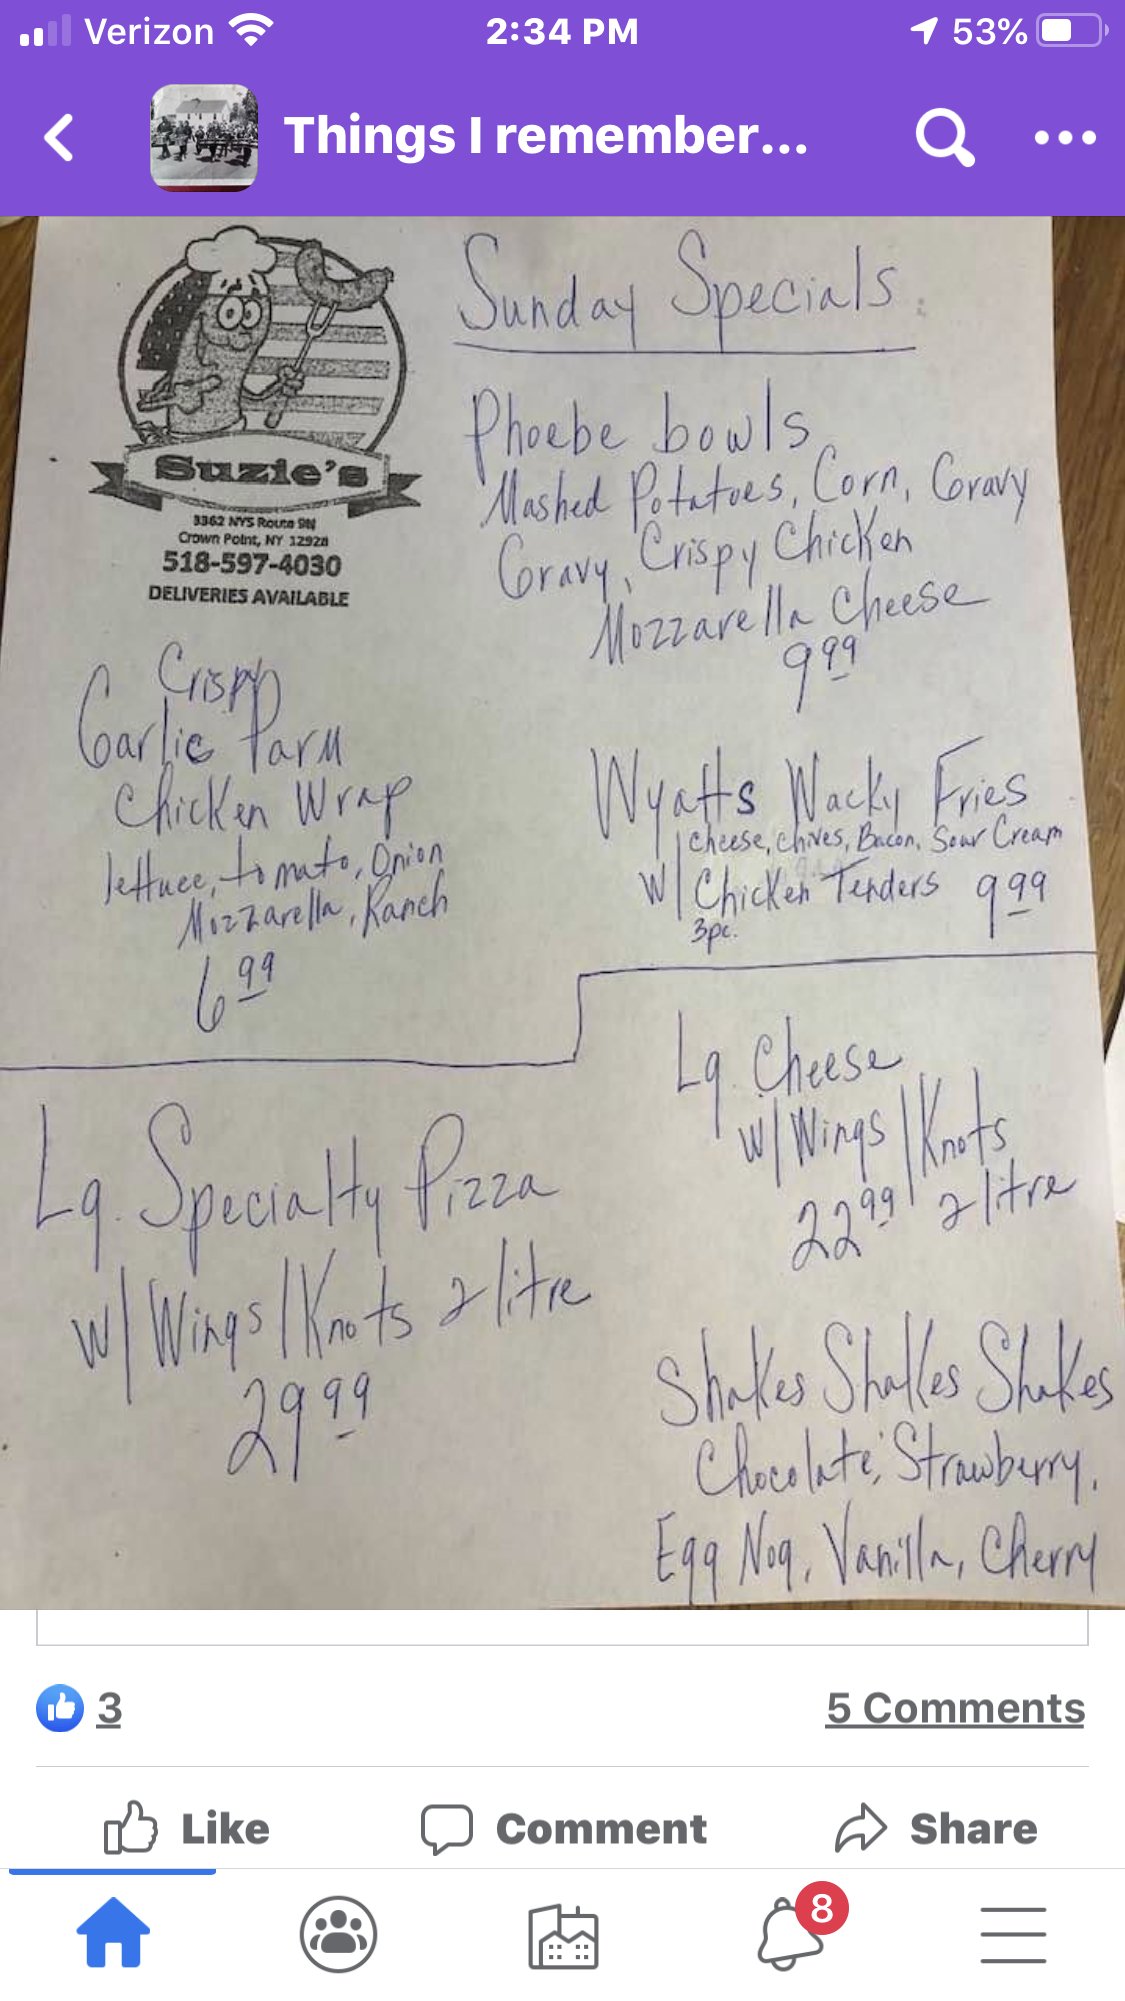 Verizon 2:34 PM 53%
Things I remember...
Sunday Specials
Suzie's
3362 NYS Route 9N
Crown Point, NY 12928
518-597-4030
DELIVERIES AVAILABLE
Phoebe bowls
Mashed Potatoes, Corn, Gravy
Gravy, Crispy Chicken
Mozzarella Cheese
9 99
Crispy
Garlic Parm
Chicken Wrap
lettuce, tomato, Onion
Mozzarella, Ranch
6 99
Wyatts Wacky Fries
cheese, chives, Bacon, Sour Cream
w/ Chicken Tenders 9 99
3pc.
Lg. Cheese
w/ Wings / Knots
22 99 2 litre
Lg. Specialty Pizza
w/ Wings / Knots 2 litre
29 99
Shakes Shakes Shakes
Chocolate, Strawberry,
Egg Nog, Vanilla, Cherry
3 5 Comments
Like Comment Share
8